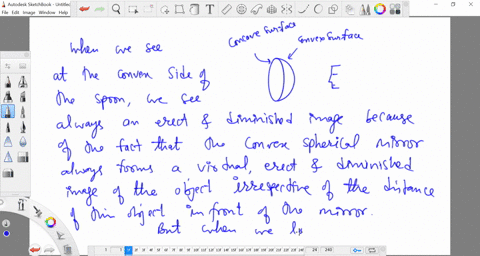 Autodesk SketchBook - Untitled
File Edit Image Window Help
Concave surface
Convex surface
When we see
at the convex side of
the spoon, we see
always an erect & diminished image because
of the fact that the convex spherical mirror
always forms a virtual, erect & diminished
image of the object irrespective of the distance
of the object in front of the mirror.
But when we